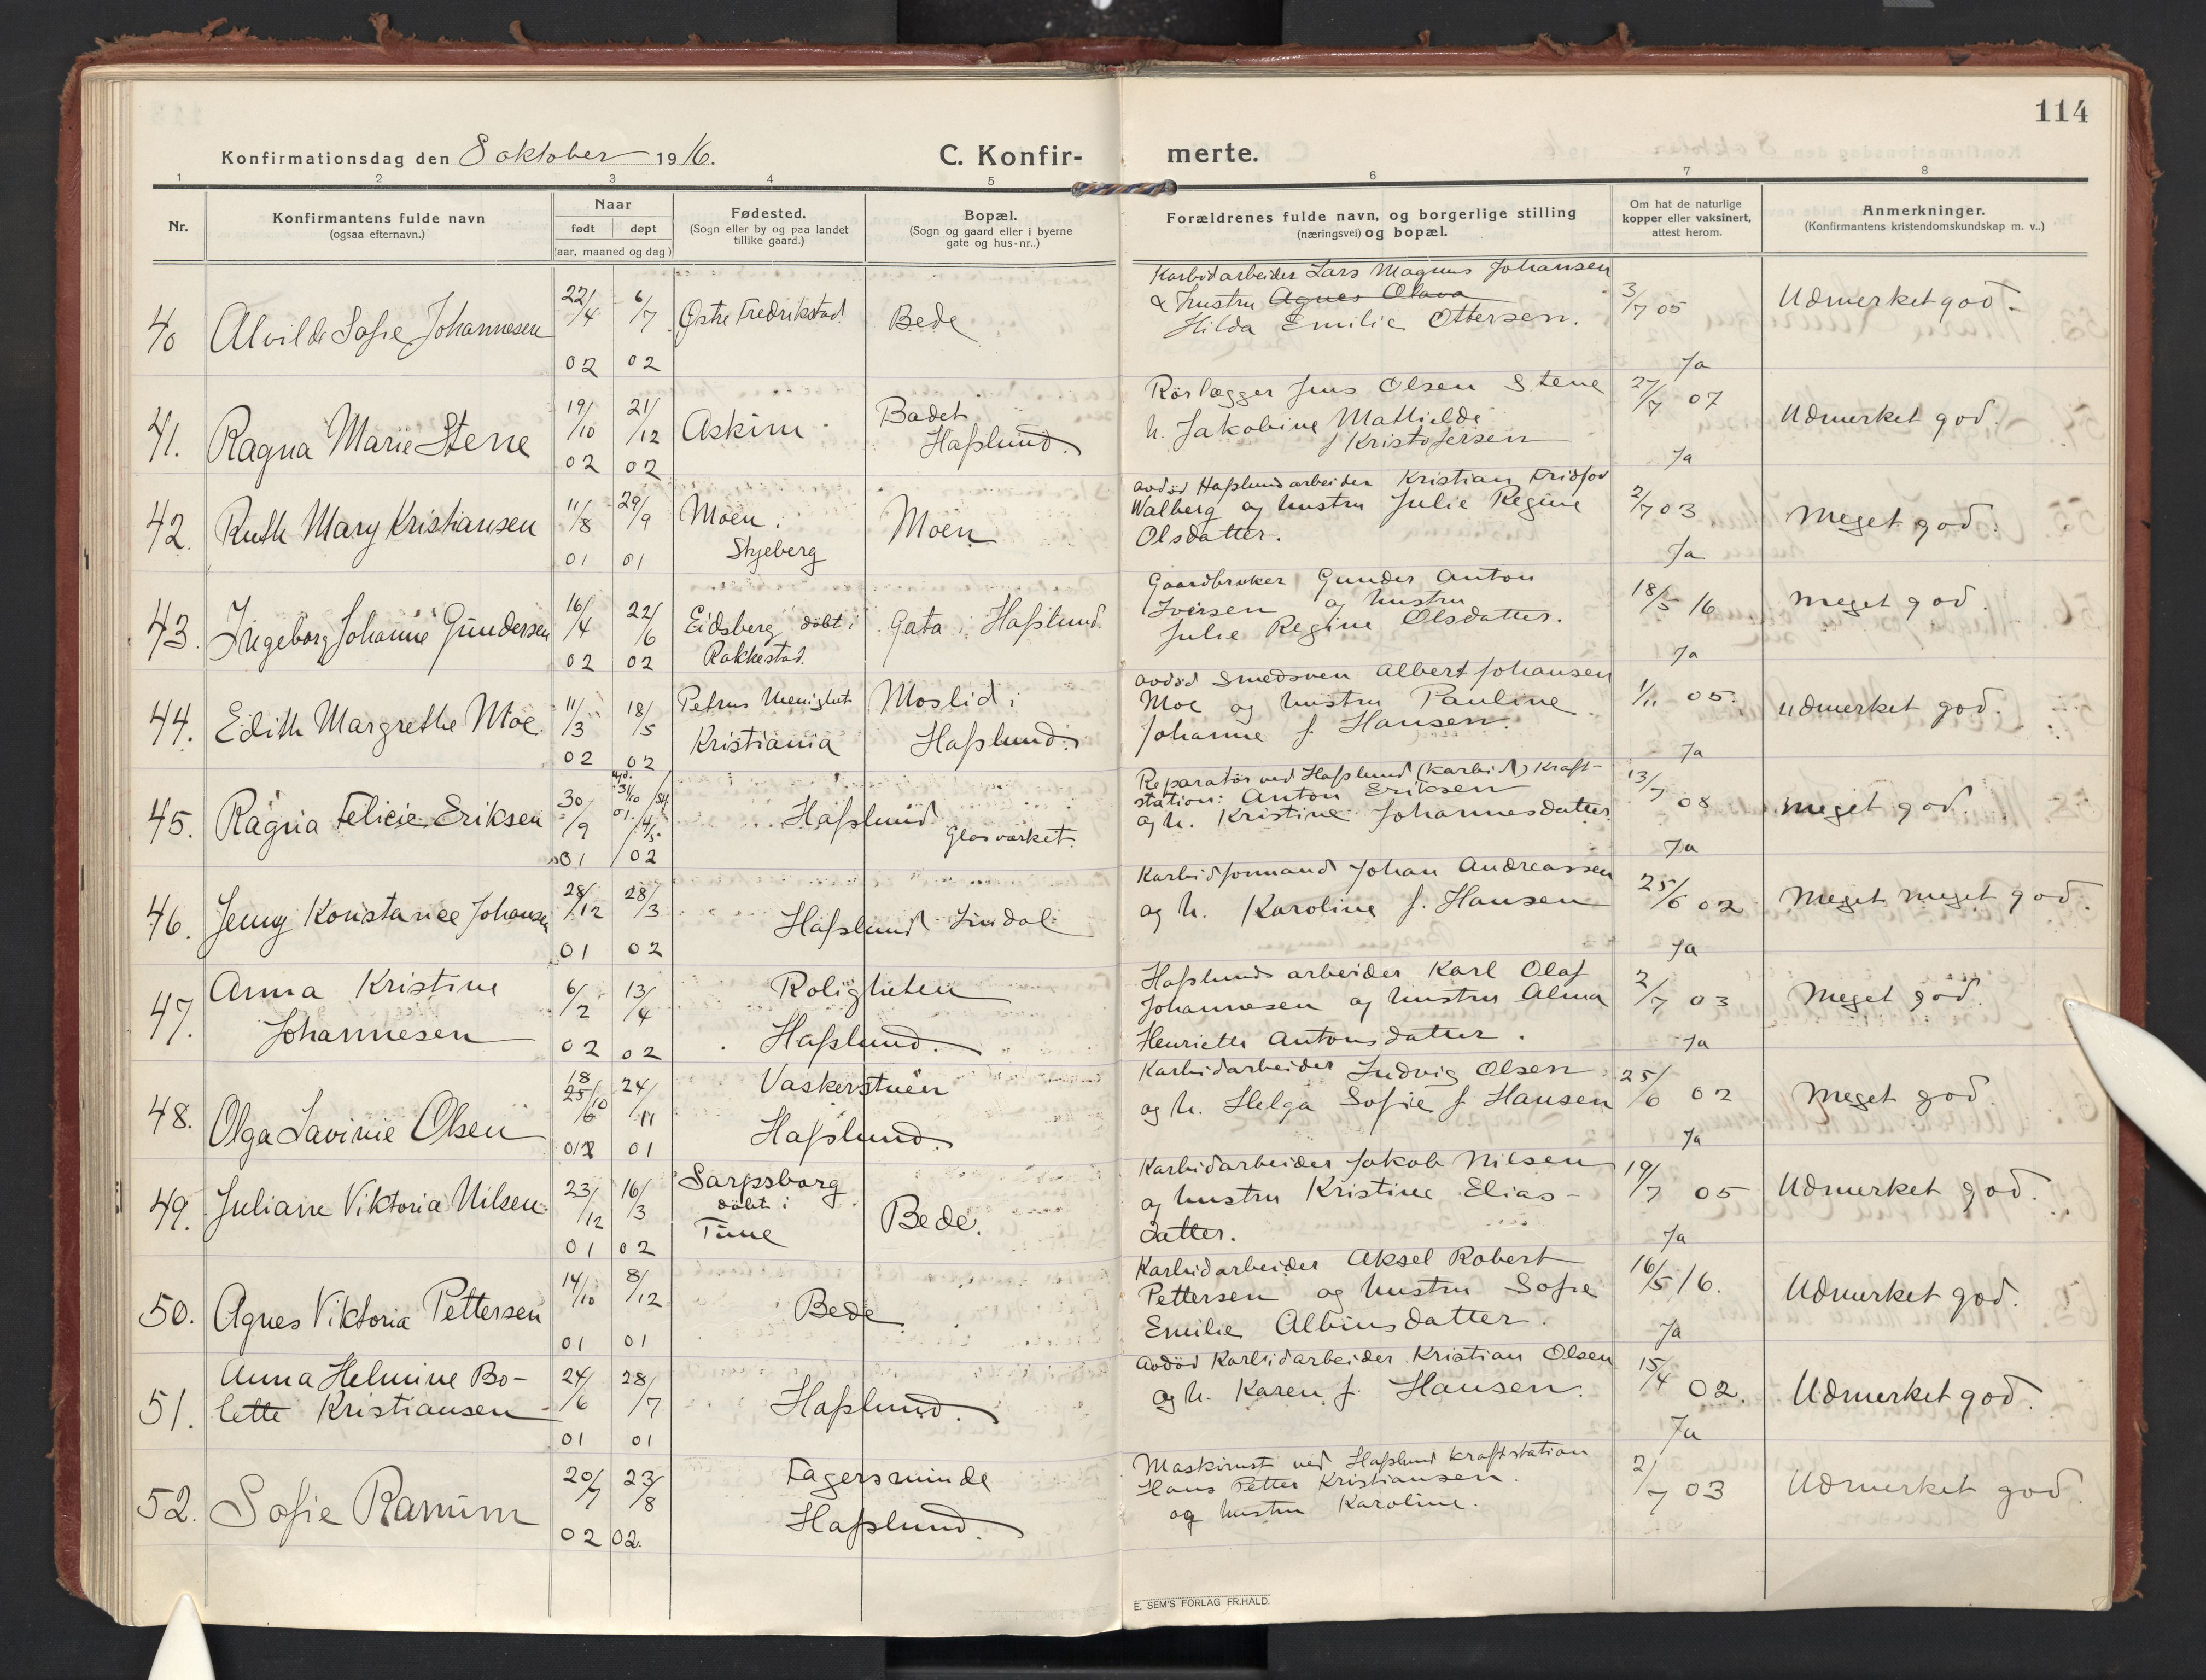 114
Konfirmationsdag den 8 oktober 1916.
C. Konfir-
merte.
1 2 3 4 5 6 7 8
Nr.
Konfirmantens fulde navn
(ogsaa efternavn.)
Naar
født døpt
(aar, maaned og dag)
Fødested.
(Sogn eller by og paa landet
tillike gaard.)
Bopæl.
(Sogn og gaard eller i byerne
gate og hus-nr..)
Forældrenes fulde navn, og borgerlige stilling
(næringsvei) og bopæl.
Om hat de naturlige
kopper eller vaksinert,
attest herom.
Anmerkninger.
(Konfirmantens kristendomskundskap m. v..)
40
Alvilde Sofie Johannesen
22/4 02
6/7 02
Østre Fredrikstad.
Bede
Karbidarbeider Lars Magnus Johansen
& hustru Agnes Olava
Hilda Emilie Ottersen.
3/7 05
Ja
Udmerket god.
41.
Ragna Marie Stene
19/10 02
21/12 02
Askim
Badet
Haſslund.
Rørlægger Jens Olsen Stene
h. Jakobine Mathilde
f Kristofersen
27/7 07
Ja
Udmerket god.
42.
Ruth Mary Kristiansen
11/8 01
29/9 01
Moen i
Skjeberg
Moen
avdød Haſslundarbeider Kristian Fridjov
Walberg og hustru Julie Regine
Olsdatter.
2/7 03
Ja
Meget god.
43.
Ingeborg Johanne Gundersen
16/4 02
22/6 02
Eidsberg døbt i
Rakkestad.
Gata i Haſslund.
Gaardbruker Gunder Anton
Iversen og hustru
Julie Regine Olsdatter.
18/5 16
Ja
Meget god.
44.
Edith Margrethe Moe
11/3 02
18/5 02
Petrus Menighet
Kristiania
Moslid i
Haſslund.
avdød Smedsven Albert Johansen
Moe og hustru Pauline
Johanne f. Hansen.
1/11 05.
Ja
udmerket god.
45.
Ragna Felicie Eriksen
30/9 01
31/10 01.
4/5 02
Haſslund
Glasværket.
Reparatør ved Haſslund (karbid) Kraft-
station: Anton Eriksen
og h. Kristine Johannesdatter
13/7 08
Ja
meget god.
46.
Jenny Konstanse Johansen
28/12 01
28/3 02
Haſslund Lindal
Karbidformand Johan Andreassen
og h. Karoline f. Hansen
25/6 02
Ja
Meget meget god.
47.
Anna Kristine
Johannesen
6/2 02
13/4 02
Roligheten
Haſslund.
Haſslunds arbeider Karl Olaf
Johannesen og hustru Alma
Henriette Antonsdatter.
2/7 03
Ja
Meget god.
48.
Olga Lavinie Olsen
18/10
25/6
01
24/11 01
Vaskerstuen
Haſslund.
Karbidarbeider Ludvig Olsen
og h. Helga Sofie f Hansen
25/6 02
Ja
Meget god.
49.
Juliane Viktoria Nilsen
23/12 01
16/3 02
Sarpsborg
døbt i
Tune
Bede.
Karbidarbeider Jakob Nilsen
og hustru Kristine Elias-
datter.
19/7 05
Ja
Udmerket god.
50.
Agnes Viktoria Pettersen
14/10 01
8/12 01
Bede
Karbidarbeider Aksel Robert
Pettersen og hustru Sofie
Emilie Albinsdatter.
16/5 16.
Ja
Udmerket god.
51.
Anna Helmine Bo-
lette Kristiansen
24/6 01
28/7 01
Haſslund.
Avdød Karbidarbeider Kristian Olsen
og h. Karen f. Hansen.
15/4 02.
Ja
Udmerket god.
52.
Sofie Ramm
20/7 02
23/8 02.
Fagersminde
Haſslund.
Maskinist ved Haſslund kraftstation
Hans Petter Kristiansen.
og hustru Karoline.
2/7 03
Udmerket god.
E. SEM'S FORLAG FR.HALD.